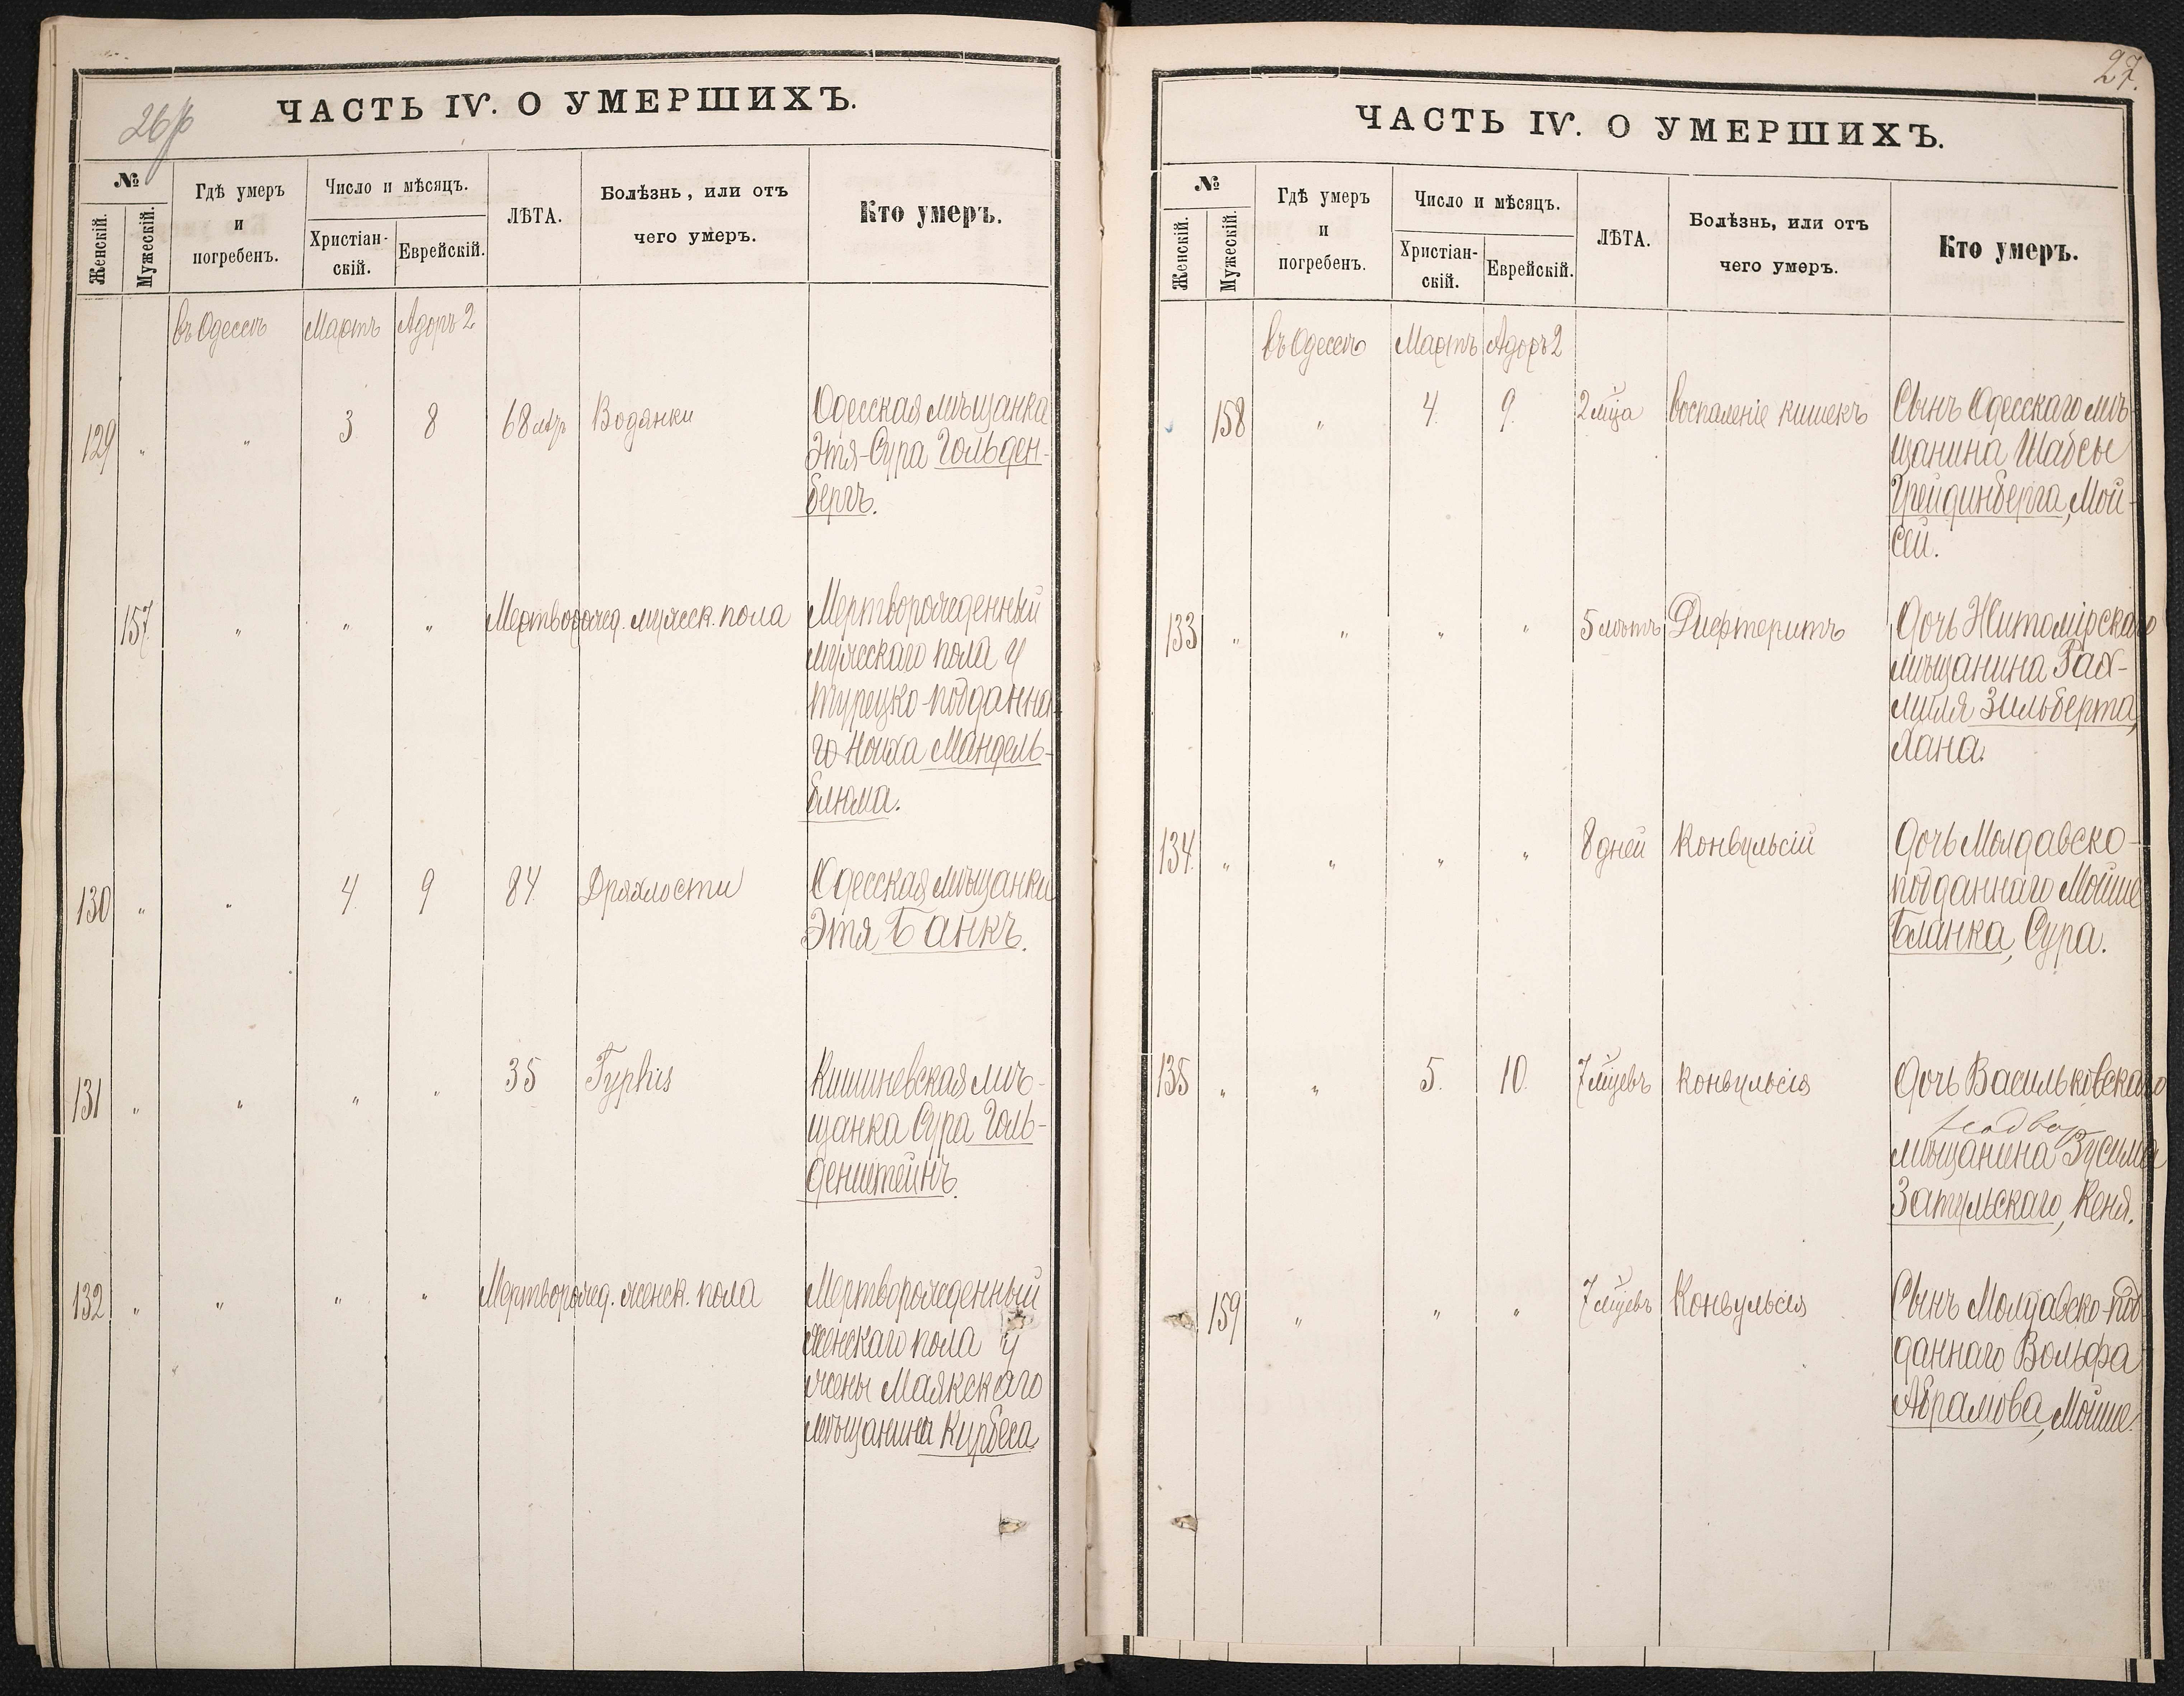 26/б
ЧАСТЬ IV. О УМЕРШИХЪ.
№
Женскій.
Мужескій.
Гдѣ умеръ
и
погребенъ.
Число и мѣсяцъ.
Христіан-
скій.
Еврейскій.
ЛѢТА.
Болѣзнь, или отъ
чего умеръ.
Кто умеръ.
въ Одессѣ Мартъ Адоръ 2
129 " " 3 8 68 лѣтъ Водянки Одесская мѣщанка
Этя-Сура Гольден-
бергъ.
157 " " " Мертворожд. мужеск. пола Мертворожденный
мужескаго пола у
турецко-подданна-
го Ноиха Мандель-
блюма.
130 " " 4 9 84 Дряхлости Одесская мѣщанка
Этя Банкъ.
131 " " " " 35 Typhis Кишиневская мѣ-
щанка Сура Голь-
денштейнъ.
132 " " " " Мертворожд. женск. пола Мертворожденный
женскаго пола у
жены Маякскаго
мѣщанина Курбеса
27.
ЧАСТЬ IV. О УМЕРШИХЪ.
№
Женскій.
Мужескій.
Гдѣ умеръ
и
погребенъ.
Число и мѣсяцъ.
Христіан-
скій.
Еврейскій.
ЛѢТА.
Болѣзнь, или отъ
чего умеръ.
Кто умеръ.
въ Одессѣ Мартъ Адоръ 2
158 " 4. 9. 2 м̃ца воспаленіе кишекъ Сынъ Одесскаго мѣ-
щанина Шабсы
Грейдинберга, Мой-
сей.
133 " " " " 5 лѣтъ Дифтеритъ Дочь Житомірскаго
мѣщанина Рах-
миля Зильберта,
Хана.
134 " " " " 8 дней Конвульсій Дочь Молдавско-
подданнаго Мойше
Бланка, Сура.
135 " " 5. 10. 7 м̃цевъ конвульсія Дочь Васильковскаго
мѣщанина Зусима
Затульскаго, Кеня.
159 " " " 7 м̃цевъ Конвульсія Сынъ Молдавско-под-
даннаго Вольфа
Абрамова, Мойше.